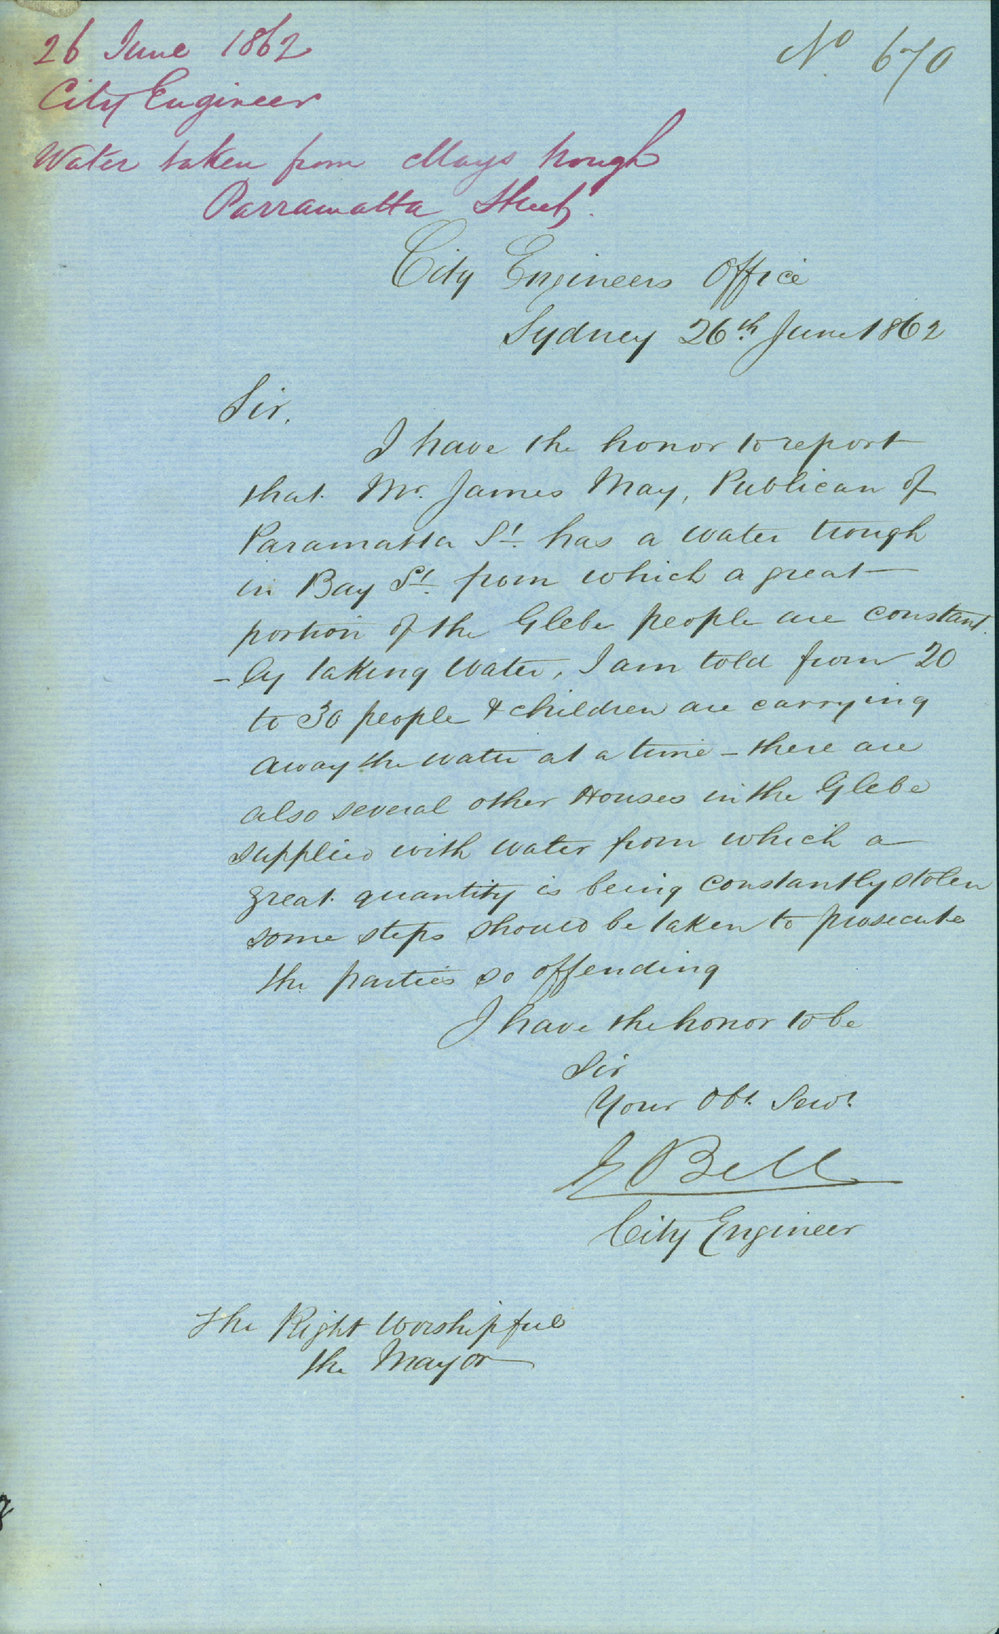 26 June 1862
No 670
City Engineer
Water taken from Mays trough
Parramatta Street
City Engineers Office
Sydney 26th June 1862
Sir,
I have the honor to report
that Mr. James May, Publican of
Paramatta St. has a water trough
in Bay St. from which a great
portion of the Glebe people are constant
-ly taking water, I am told from 20
to 30 people & children are carrying
away the water at a time - there are
also several other Houses in the Glebe
supplied with water from which a
great quantity is being constantly stolen
some steps should be taken to prosecute
the parties so offending
I have the honor to be
Sir
Your Obt. Servt
E Bell
City Engineer
The Right Worshipful
the Mayor